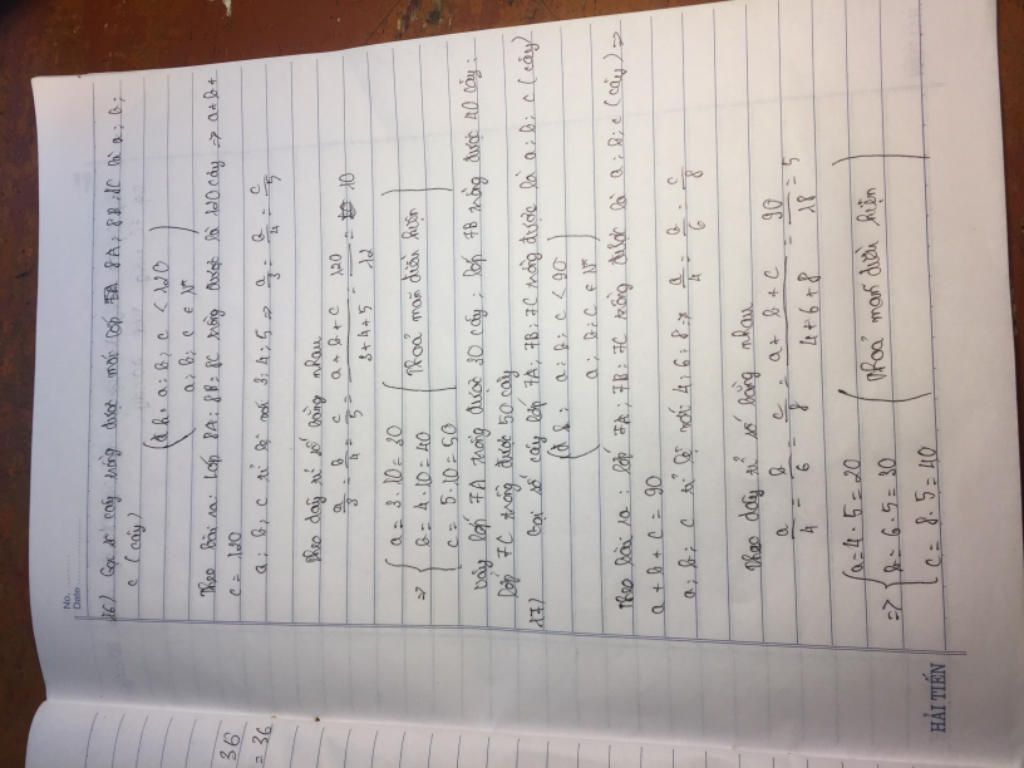 No.
Date
16) Gọi số cây trồng được mỗi lớp 8A; 8B; 8C là a; b;
c (cây)
(đk: a; b; c < 120
a; b; c ∈ N*)
Theo bài ra: Lớp 8A; 8B; 8C trồng được là 120 cây => a + b +
c = 120
a; b; c tỉ lệ với 3; 4; 5 => a/3 = b/4 = c/5
Theo dãy tỉ số bằng nhau
a/3 = b/4 = c/5 = (a + b + c)/(3+4+5) = 120/12 = 10
=> { a = 3 . 10 = 30
b = 4 . 10 = 40 (Thoả mãn điều kiện)
c = 5 . 10 = 50
Vậy lớp 7A trồng được 30 cây; lớp 7B trồng được 40 cây;
lớp 7C trồng được 50 cây
17) Gọi số cây lớp 7A; 7B; 7C trồng được là a; b; c (cây)
(đk: a; b; c < 90
a; b; c ∈ N*)
Theo bài ra: lớp 7A; 7B; 7C trồng được là a; b; c (cây) =>
a + b + c = 90
a; b; c tỉ lệ với 4; 6; 8 => a/4 = b/6 = c/8
Theo dãy tỉ số bằng nhau
a/4 = b/6 = c/8 = (a + b + c)/(4+6+8) = 90/18 = 5
=> { a = 4 . 5 = 20
b = 6 . 5 = 30 (Thoả mãn điều kiện)
c = 8 . 5 = 40
HẢI TIẾN
36
= 36